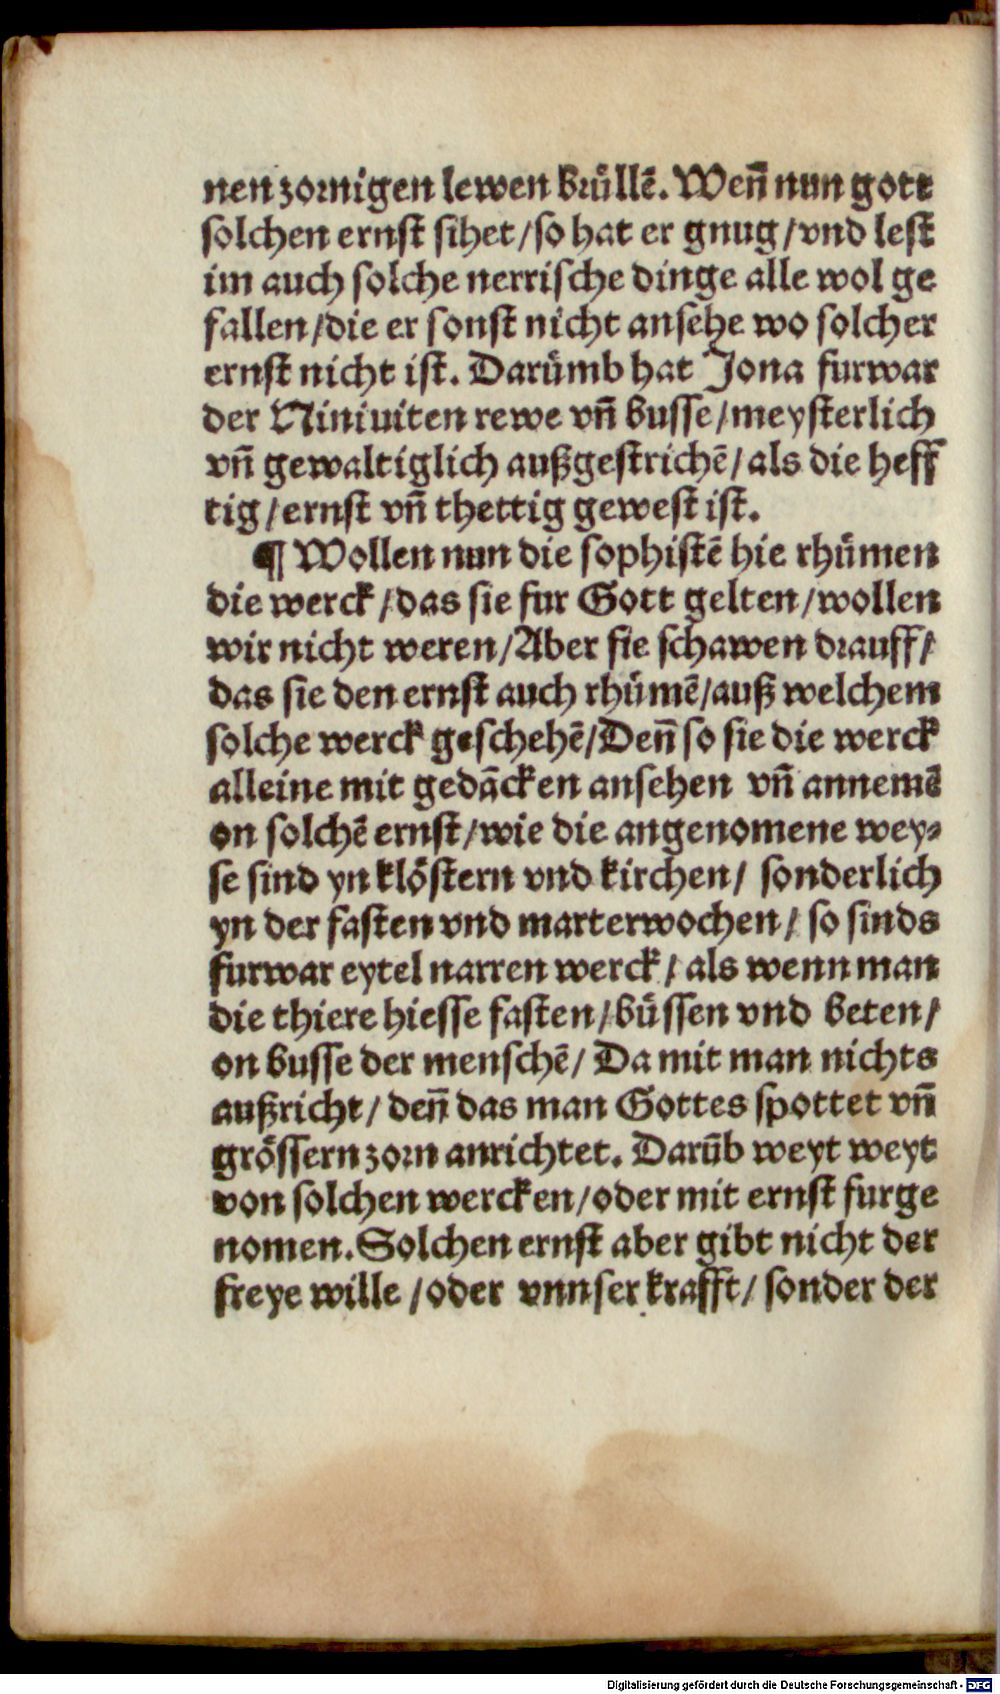 nen zornigen lewen brüllē. Weñ nun gott
solchen ernst sihet/so hat er gnug/vnd lest
im auch solche nerrische dinge alle wol ge
fallen/die er sonst nicht ansehe wo solcher
ernst nicht ist. Darümb hat Jona furwar
der Niniuiten rewe vñ busse/meysterlich
vñ gewaltiglich außgestrichē/als die heff
tig/ernst vñ thettig gewest ist.
¶ Wollen nun die sophistē hie rhümen
die werck/das sie fur Gott gelten/wollen
wir nicht weren/Aber sie schawen drauff/
das sie den ernst auch rhümē/auß welchem
solche werck geschehē/Deñ so sie die werck
alleine mit gedācken ansehen vñ annemē
on solchē ernst/wie die angenomene wey⸗
se sind yn klöstern vnd kirchen/ sonderlich
yn der fasten vnd marterwochen/ so sinds
furwar eytel narren werck/ als wenn man
die thiere hiesse fasten/büssen vnd beten/
on busse der menschē/ Da mit man nichts
außricht/ deñ das man Gottes spottet vñ
grössern zorn anrichtet. Darüb weyt weyt
von solchen wercken/oder mit ernst furge
nomen. Solchen ernst aber gibt nicht der
freye wille /oder vnnser krafft/ sonder der
Digitalisierung gefördert durch die Deutsche Forschungsgemeinschaft - DFG